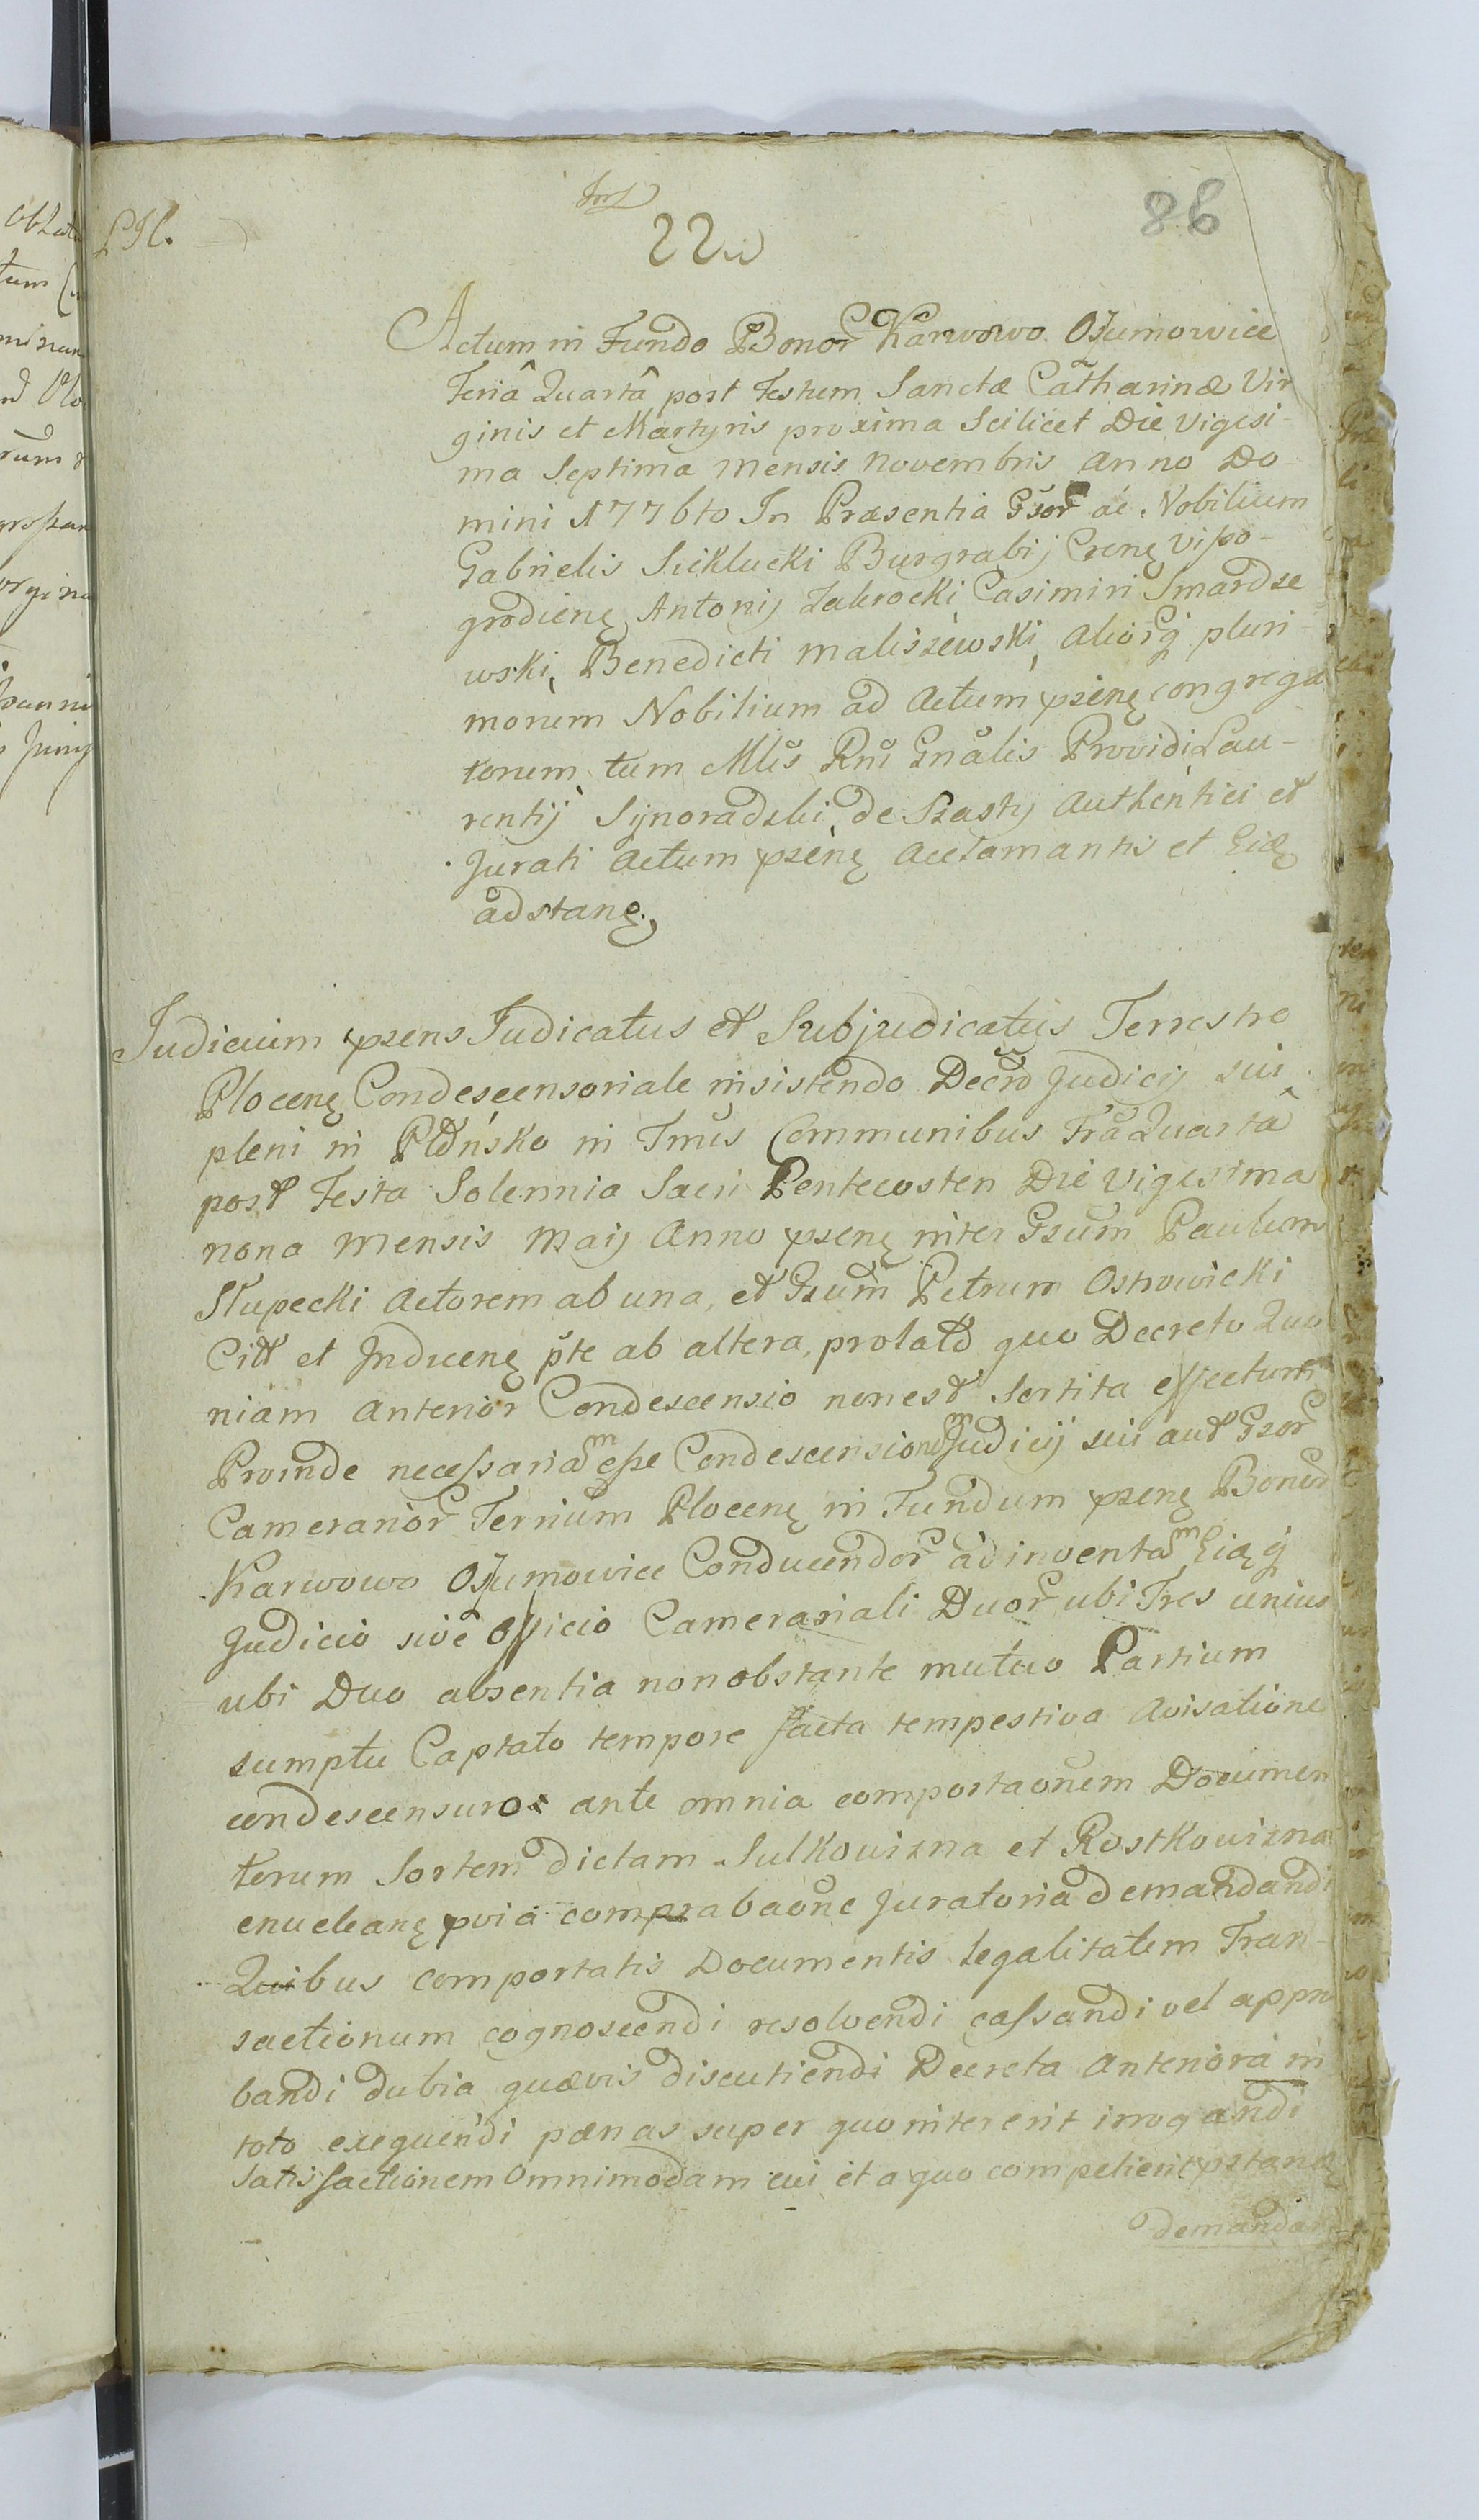 86
22
Actum in Fundo Bonor Karwowo Osumowice
Feriâ Quartâ post Festum Sanctæ Catharinæ Vir
ginis et Martyris proxima Scilicet Die Vigesi-
ma Septima Mensis Novembris Anno Do
mini 1776to In Præsentia Gsor ac Nobilium
Gabrielis Siklucki Burgrabij Crenę Viſso-
grodienę Antonij Zakrocki Casimiri Smardze
wski, Benedicti Maliszewski, aliorq pluri
morum Nobilium ad Actum psenę congrega
torum, tum Mlis Rni Gnalis Providi Lau-
rentij Synoradzki de Szasty Authentici et
Jurati Actum psenę acclamantis et Eidę
adstanę.
Judicium psens Judicatus et Subjudicatus Terrestre
Plocenę Condescensoriale insistendo Decro Judicij sui
pleni in Płońsko in Tmis Communibus Fra Quartâ
post Festa Solennia Sacri Pentecosten Die Vigesima
nona Mensis Maij Anno psenę inter Gsum Paulum
Słupecki Actorem ab una, et Gsum Petrum Ostrowicki
Citt et Inducenę pte ab altera, prolato quo Decreto Quo
niam anterior Condescensio non est sortita effectum
Proinde neceſsariam eſse Condescensionem Judicij sui aut Gsor
Camerarior Terrium Plocenę in Fundum psenę Bonor
Karwowo Osumowice Conducendor adinventam Eidęq
Judicio sive Officio Camerariali Duor ubi Tres unius
ubi Duo absentia non obstante mutuo Partium
sumptu Captato tempore facta tempestiva Avisatione
condescensuros ante omnia comportaonem Documen
torum Sortem dictam Sulkowizna et Rostkowizna
enucleanę pvia comprabaone Juratoria demandandi
Quibus comportatis Documentis legalitatem Tran-
sactionum cognoscendi resolvendi caſsandi vel appro
bandi dubia quævis discutiendi Decreta Anteriora in
toto exequendi pænas super quo intererit irrogandi
Satisfactionem Omnimodam cui et a quo competierit pstanę
demandan